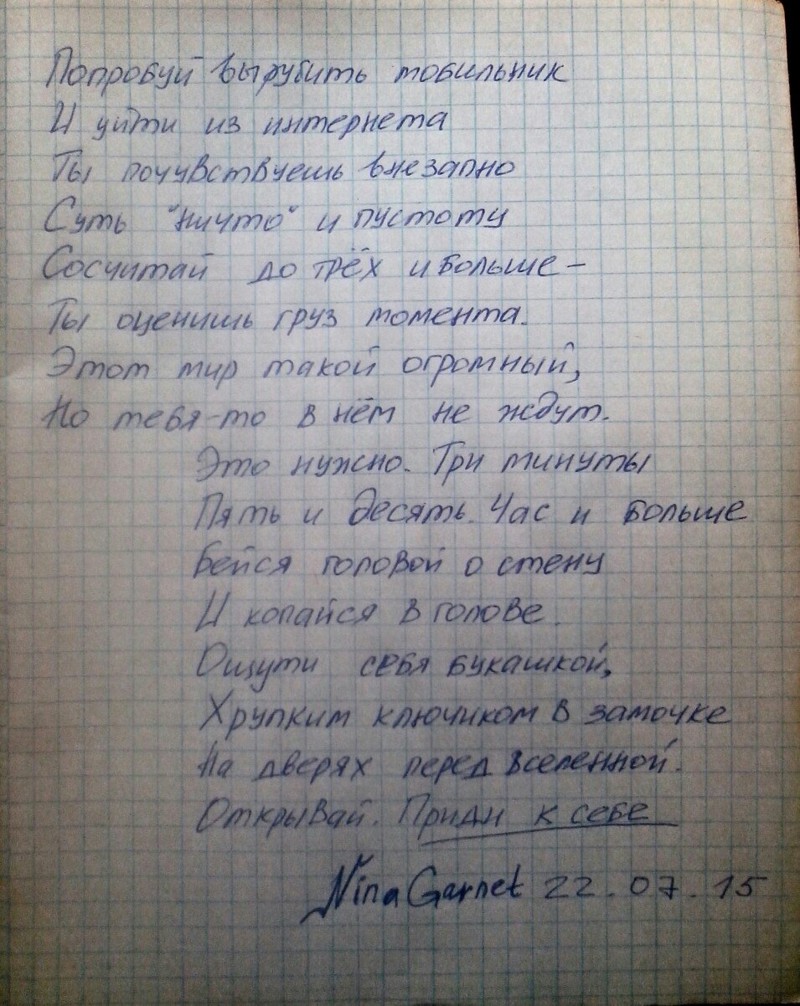 Попробуй вырубить мобильник
И уйти из интернета
Ты почувствуешь внезапно
Суть "ничто" и пустоту
Сосчитай до трёх и больше –
Ты оценишь груз момента.
Этот мир такой огромный,
Но тебя-то в нём не ждут.
Это нужно. Три минуты
Пять и десять. Час и больше
Бейся головой о стену
И копайся в голове.
Ощути себя букашкой,
Хрупким ключиком в замочке
На дверях перед вселенной.
Открывай. Приди к себе
Nina Garnet 22.07.15